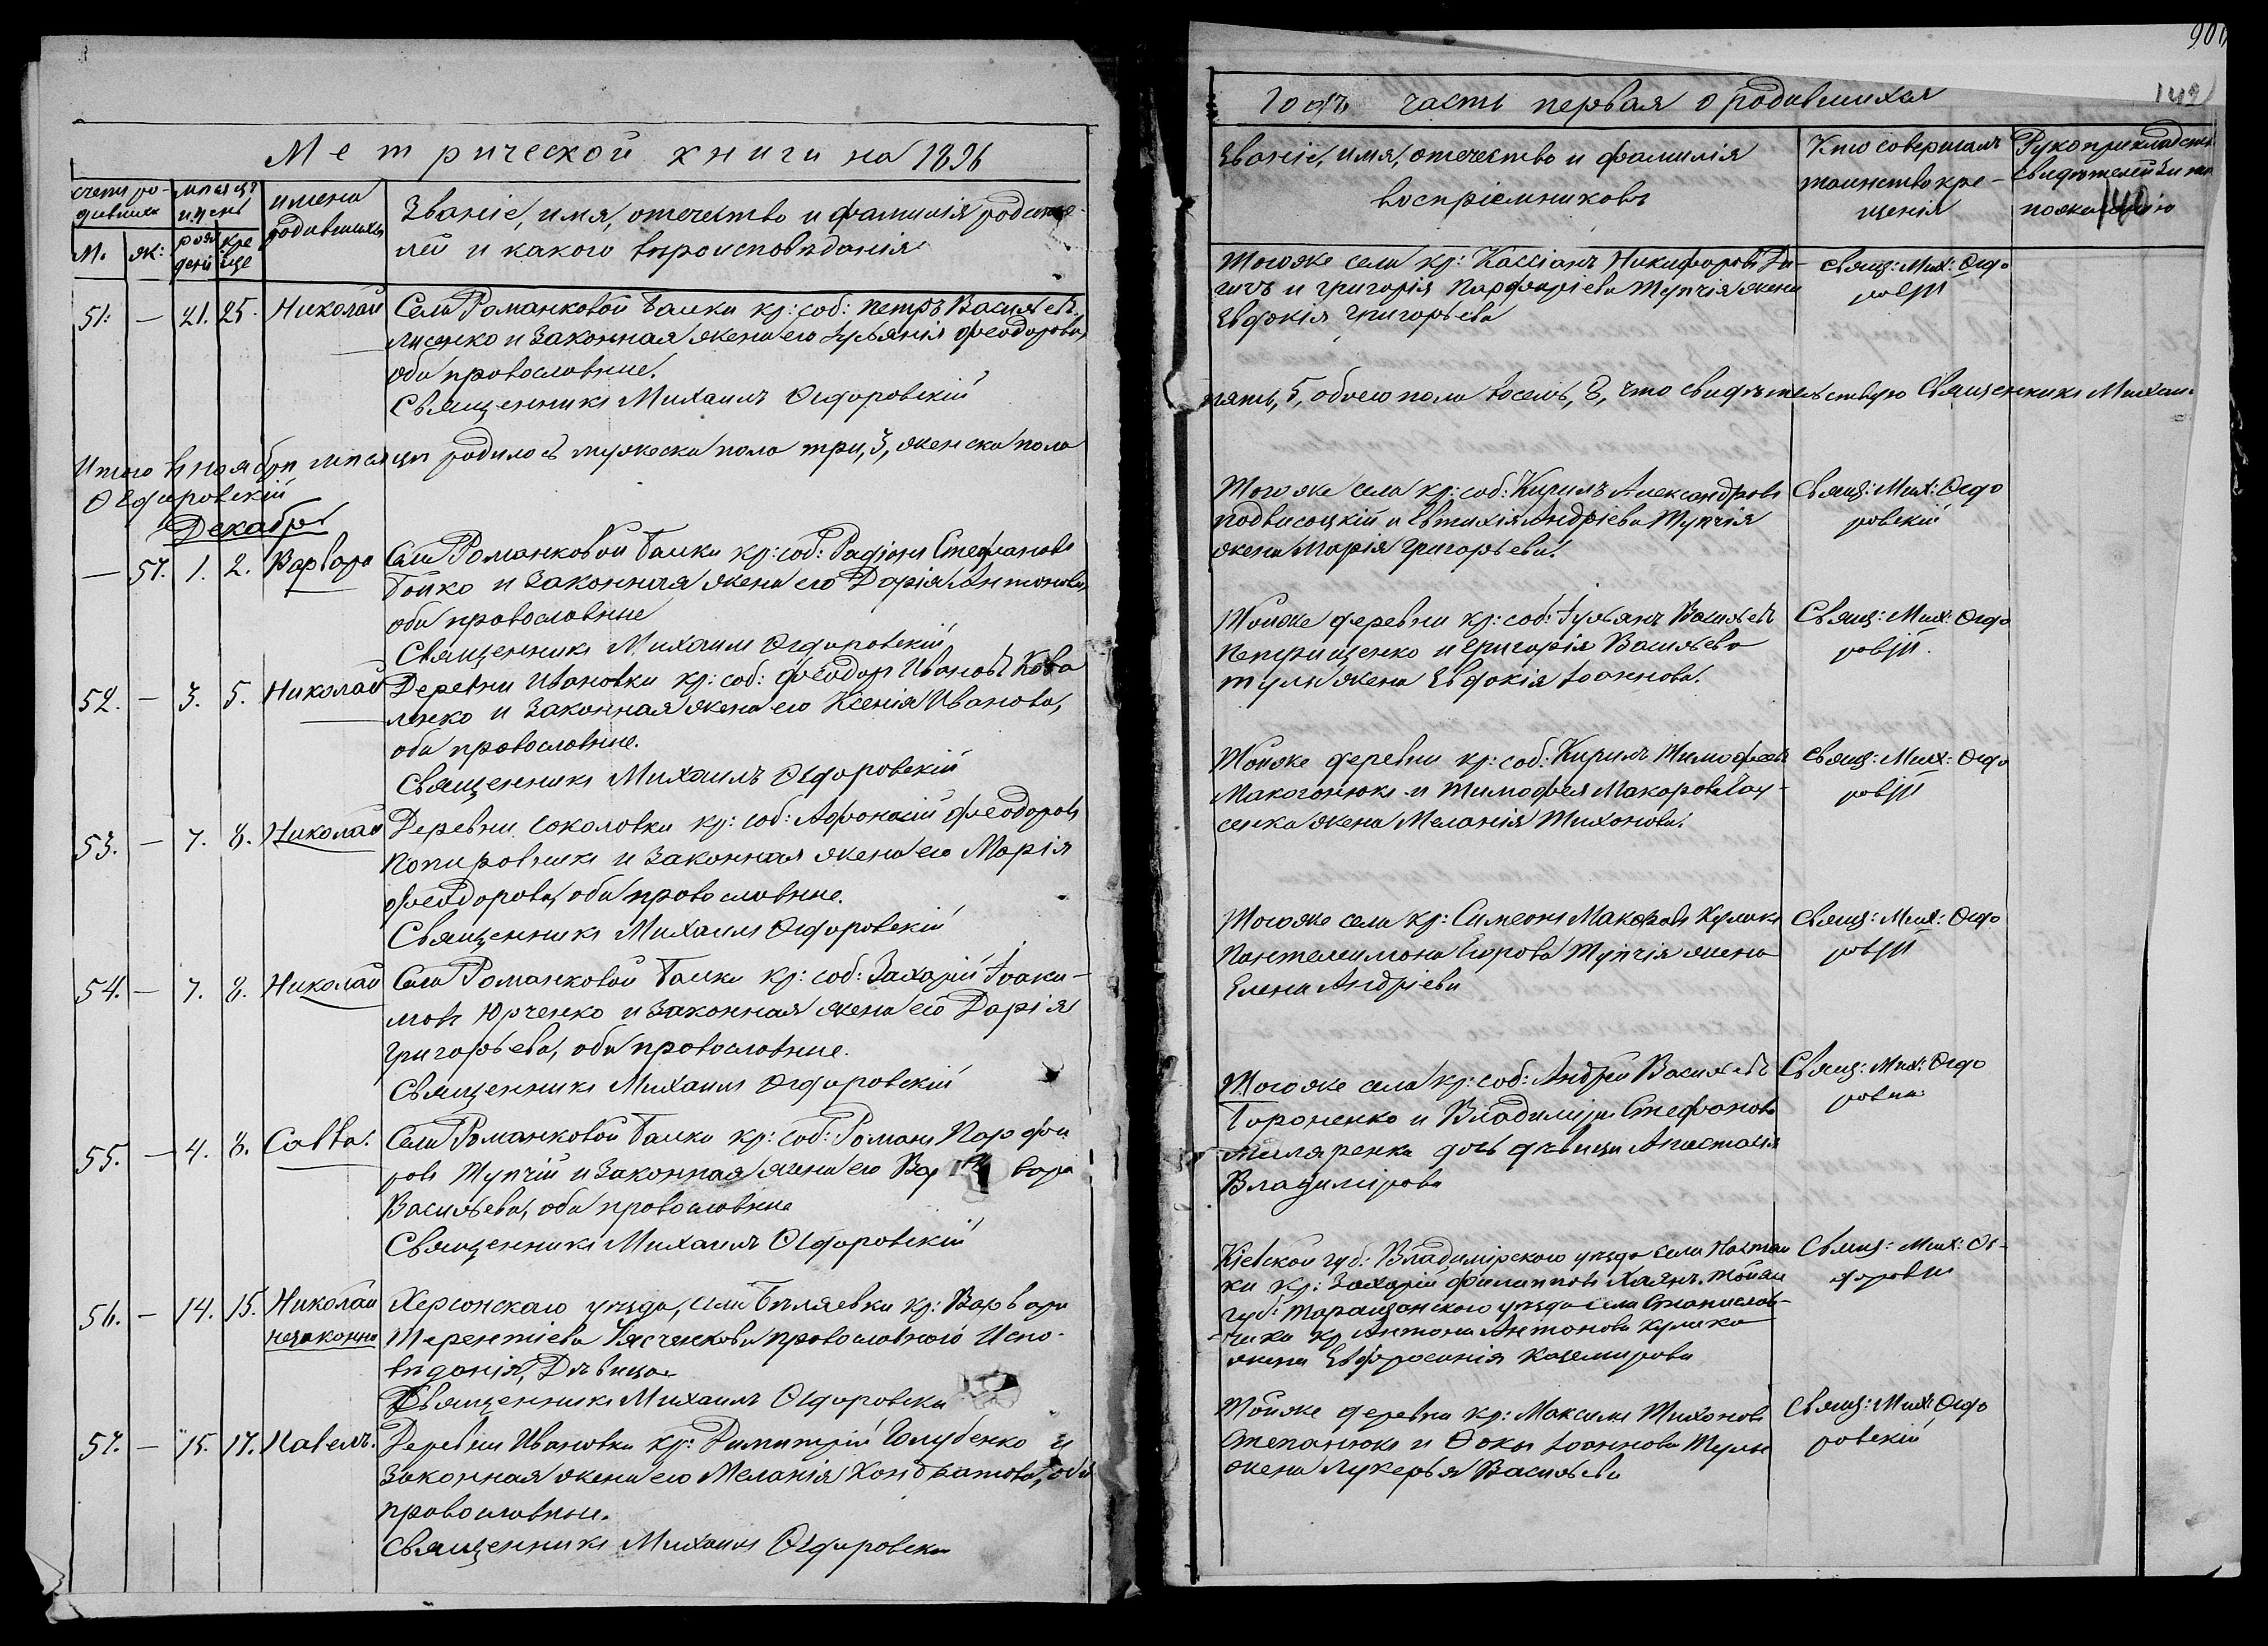 Метрической книги на 1896
счетъ ро-
дивших
м. жк:
мѣсяцъ
и день
рож
дені
кре
ще
имена
родившихъ
Званіе, имя, отечество и фамилія родите-
лей и какого вѣроисповѣданія
51. — 21. 25. Николай
Села Романковой Балки кр: соб: Петръ Васильевъ
Лисенко и законная жена его Іульянія Феодорова,
оба православные.
Священникъ Михаилъ Огдоровскій
Итого в ноябрѣ мѣсяцѣ родилось мужеска пола три, 3, женска пола
Огдоровскій
Декабрь
— 57. 1. 2. Варвара
Села Романковой Балки кр: соб: Радіонъ Стефановъ
Бойко и законная жена его Дарія Антонова,
оба православные
Священникъ Михаилъ Огдоровскій
52. — 3. 5. Николай
Деревни Ивановки кр: соб: Феодоръ Ивановъ Кова
ленко и законная жена его Ксенія Иванова,
оба православные.
Священникъ Михаилъ Огдоровскій
53. — 7. 8. Николай
Деревни Соколовки кр: соб: Афонасій Феодоровъ
Попировникъ и законная жена его Марія
Феодорова, оба православные.
Священникъ Михаилъ Огдоровскій
54. — 7. 8. Николай
Села Романковой Балки кр: соб: Захарій Іоаки-
мовъ Юрченко и законная жена его Дарія
Григорьева, оба православные.
Священникъ Михаилъ Огдоровскій
55. — 4. 8. Савва.
Села Романковой Балки кр: соб: Романъ Парфи
ровъ Тупчій и законная жена его Вар вара
Васильева, оба православные
Священникъ Михаилъ Огдоровскій
56. — 14. 15. Николай
незаконно
Херсонскаго уѣзда, села Бѣляевки кр: Варвара
Терентіева православнаго Испо-
вѣданія, Дѣвица
Священникъ Михаилъ Огдоровски
57. — 15. 17. Павелъ.
Деревни Ивановки кр: Димитрій Голубенко и
законная жена его Меланія Кондратова, оба
православные.
Священникъ Михаилъ Огдоровски
годъ часть первая о родившихся
Званіе, имя, отечество и фамилія
воспріемниковъ
Кто совершалъ
таинство кре-
щенія
Рукоприкладств
свидѣтелей
по желанію
Того же села кр: Кассіанъ Никифоровъ Ди-
гичъ и Григорія Парфирієва Тупчія жена
Евдокія Григорьева
Свящ: Мих: Огдо
ровскій
пять, 5, обоего пола восемь, 8, что свидѣтельствую Священникъ Михаи-
Того же села кр: соб: Кирилъ Александровъ
Подвисоцкій и Евтихія Андріева Тупчія
жена Марія Григорьева.
Свящ: Мих: Огдо
ровскій
Тойже деревни кр: соб: Іульянъ Васильевъ
Петрищенко и Григорія Васильева
Тули жена Евдокія Іоаннова.
Свящ: Мих: Огдо
ровскій
Тойже деревни кр: соб: Кирилъ Тимофеевъ
Макогонюкъ и Тимофея Макарова Пау-
сенка жена Меланія Тихонова.
Свящ: Мих: Огдо
ровскій
Того же села кр: Симеонъ Макаровъ Куликъ
Пантелимона Егорова Тупчія жена
Елена Андріева
Свящ: Мих: Огдо
ровскій
Того же села кр: соб: Андрей Васильевъ
Гороченко и Владиміра Стефанова
дочь дѣвица Анастасія
Владимірова
Свящ: Мих: Огдо
ровски
Кіевской губ: Владимірского уѣзда села
ки кр: Захарій Филипповъ той же
губ: Таращанского уѣзда села Станислав-
чика кр Антона Антонова Кулика
жена Евфросинія Каземирова
Свящ: Мих: Ог-
доровски
Тойже деревни кр: Максимъ Тихоновъ
Степанюкъ и Фоки Іоаннова Тули
жена Лукерья Васильева
Свящ: Мих: Огдо
ровскій